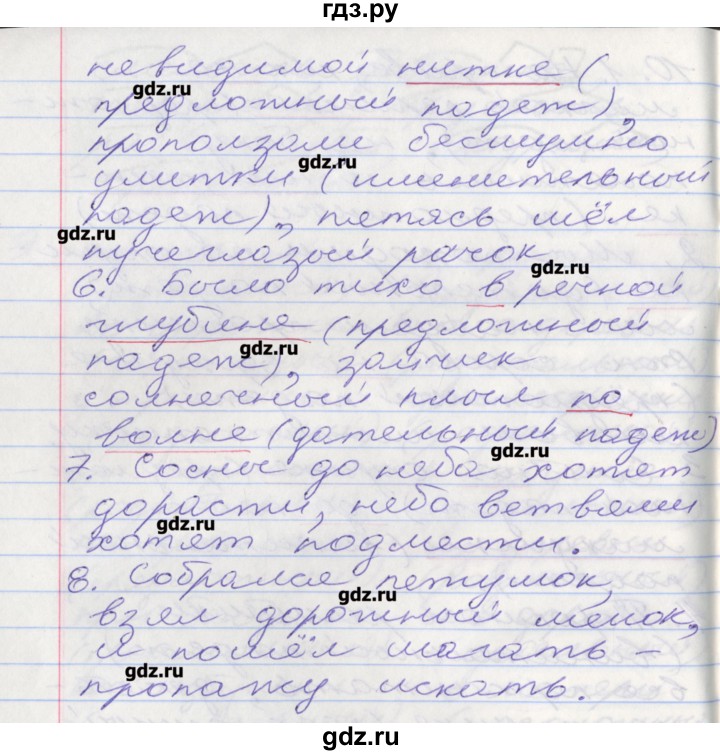 гдз.ру
невидимой нитке (
gdz.ru
предложный падеж),
проползали бесшумно
gdz.ru
улитки (именительный
падеж), пятясь шёл
gdz.ru
пучеглазый рачок
gdz.ru
6. Было тихо в речной
глубине (предложный
gdz.ru
падеж), зайчик
солнечный плыл по
волне (дательный падеж)
gdz.ru
7. Сосны до неба хотят
дорасти, небо ветвями
gdz.ru
хотят подмести.
8. Собрался петушок,
gdz.ru
взял дорожный мешок,
и пошёл шагать –
gdz.ru
пропажу искать.
gdz.ru